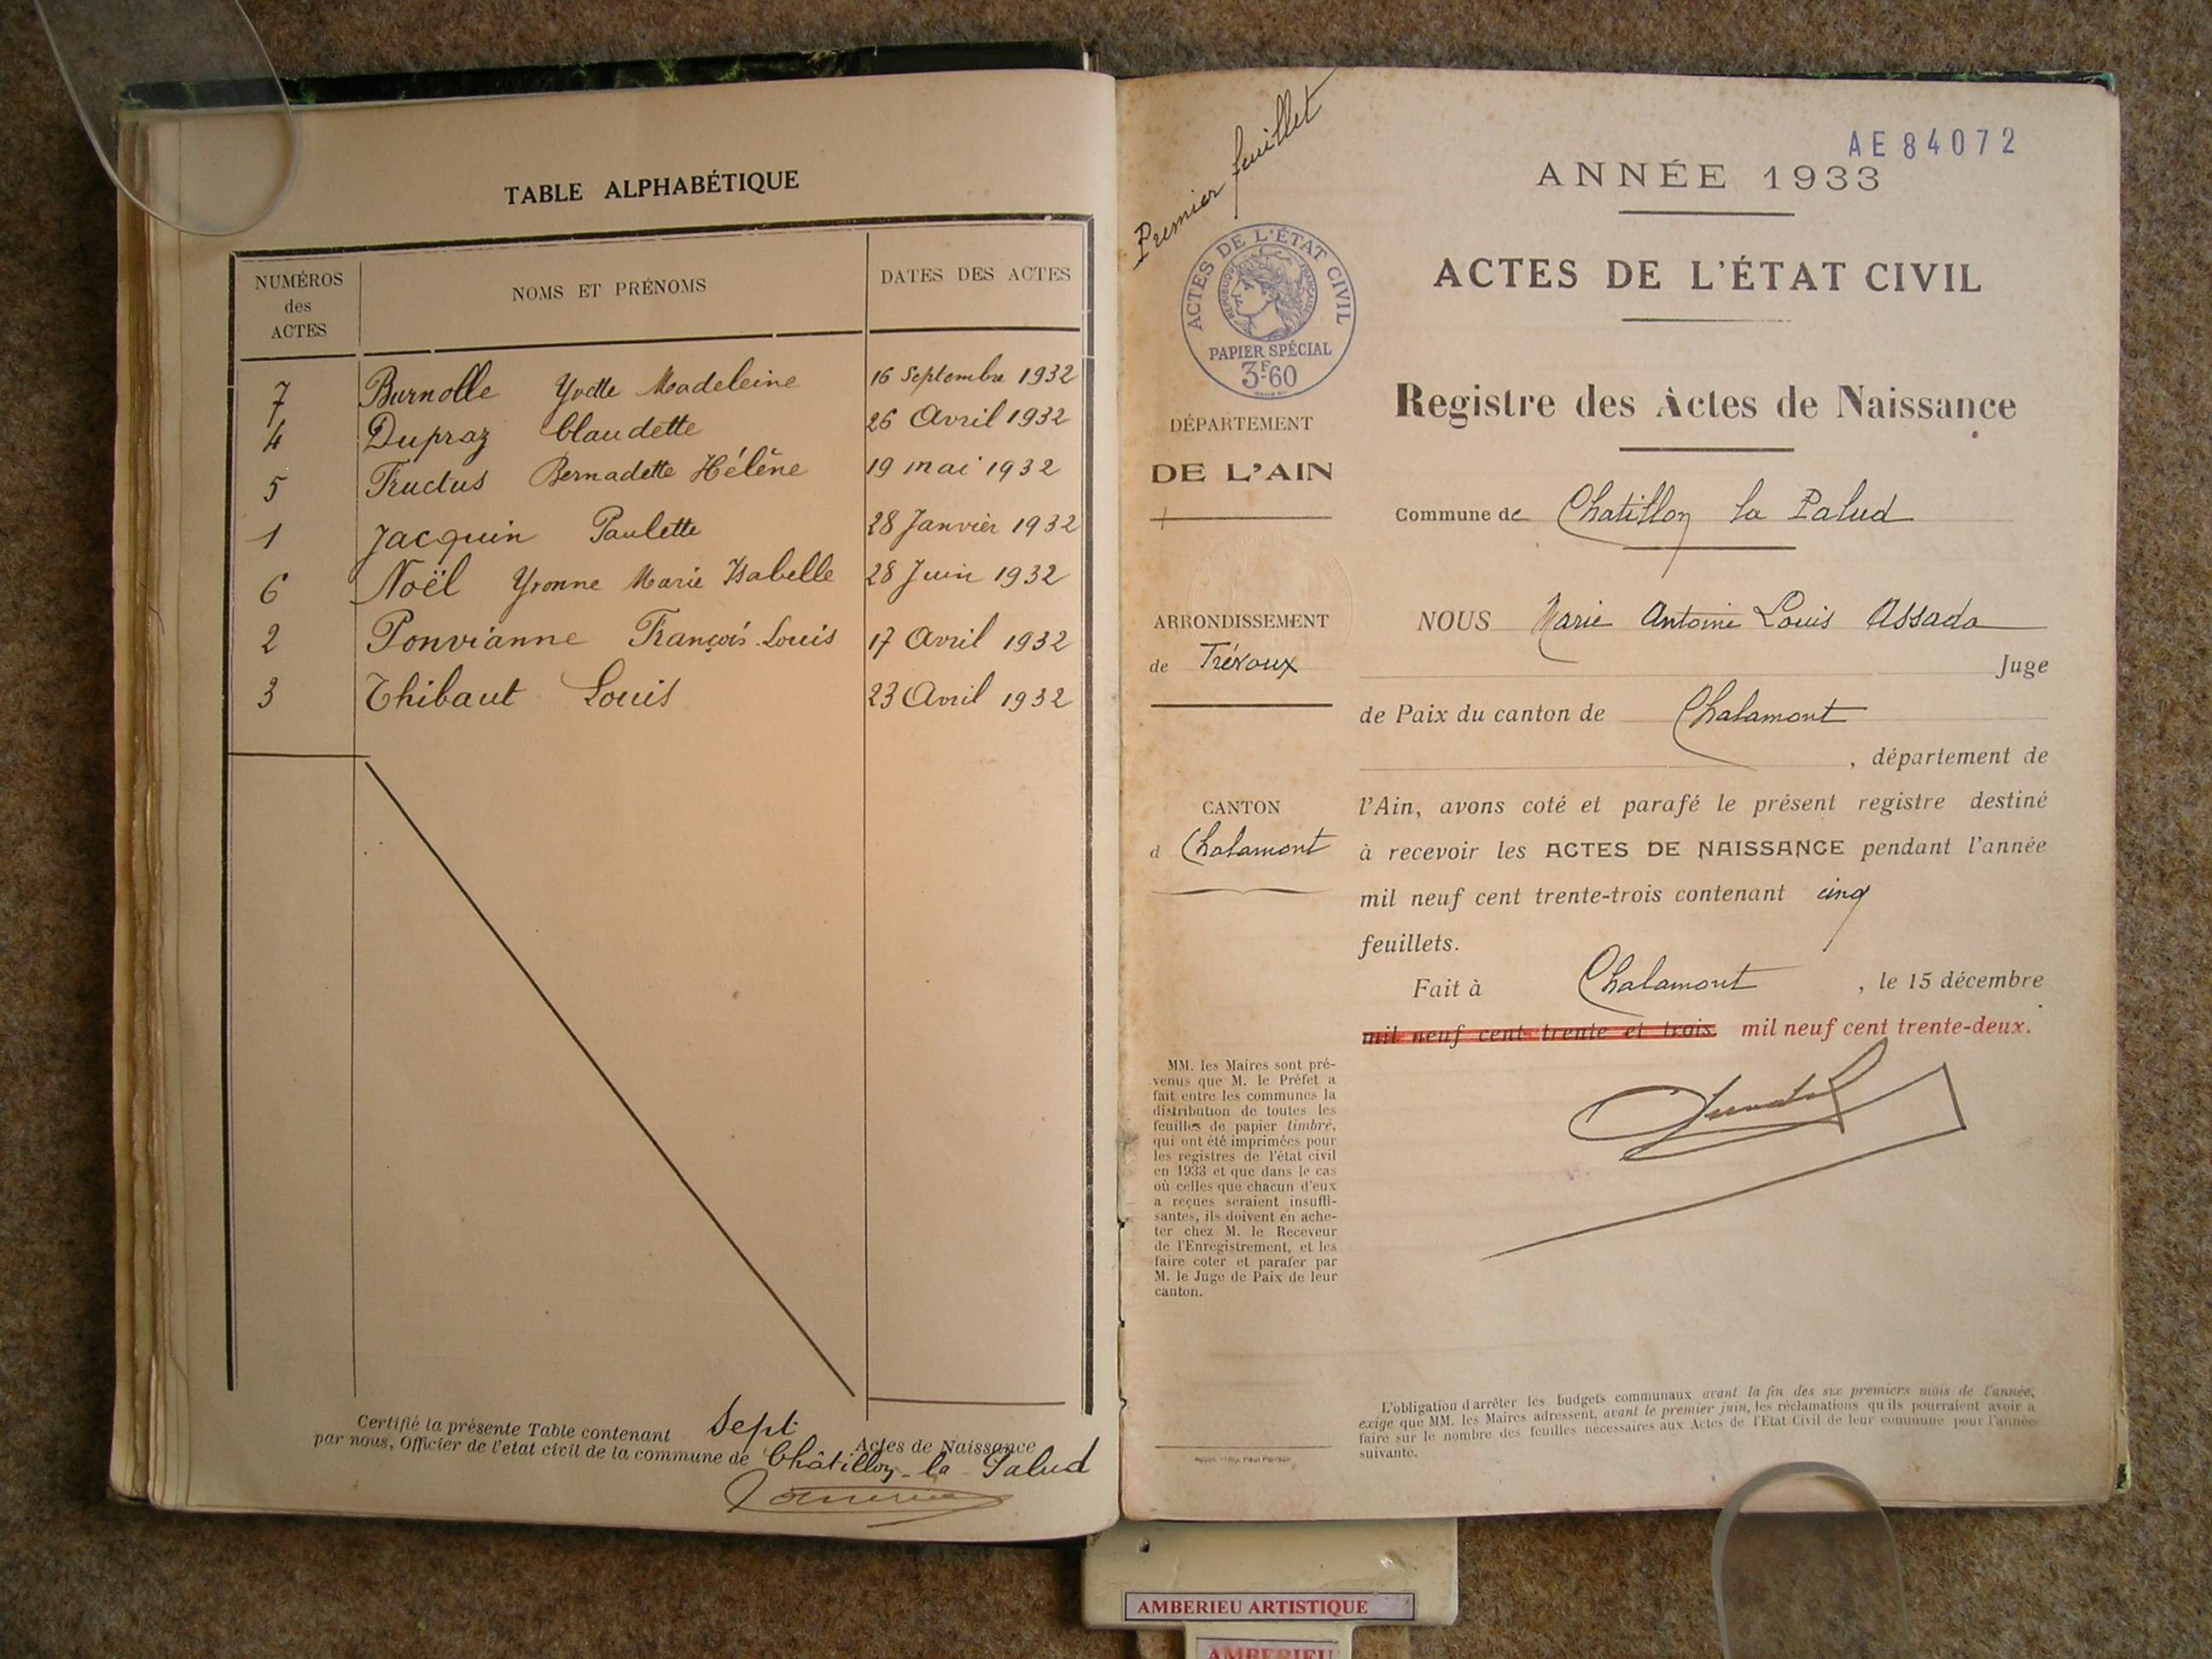 TABLE ALPHABÉTIQUE
NUMÉROS des ACTES
NOMS ET PRÉNOMS
DATES DES ACTES
7 Burnolle Yvette Madeleine 16 Septembre 1932
4 Dupraz Claudette 26 Avril 1932
5 Fructus Bernadette Hélène 19 mai 1932
1 Jacquin Paulette 28 Janvier 1932
6 Noël Yvonne Marie Isabelle 28 Juin 1932
2 Ponvianne François-Louis 17 Avril 1932
3 Thibaut Louis 23 Avril 1932
Certifié la présente Table contenant Sept Actes de Naissance
par nous, Officier de l'état civil de la commune de Châtillon-la-Palud
Premier feuillet
ACTES DE L'ÉTAT CIVIL
RÉPUBLIQUE FRANÇAISE
PAPIER SPÉCIAL
3F60
DÉPARTEMENT
DE L'AIN
ARRONDISSEMENT
de Trévoux
CANTON
d Chalamont
MM. les Maires sont pré-
venus que M. le Préfet a
fait entre les communes la
distribution de toutes les
feuilles de papier timbré,
qui ont été imprimées pour
les registres de l'état civil
en 1933 et que dans le cas
où celles que chacun d'eux
a reçues seraient insuffi-
santes, ils doivent en ache-
ter chez M. le Receveur
de l'Enregistrement, et les
faire coter et parafer par
M. le Juge de Paix de leur
canton.
AE 84072
ANNÉE 1933
ACTES DE L'ÉTAT CIVIL
Registre des Actes de Naissance
Commune de Chatillon la Palud
NOUS Marie Antoine Louis Assada
Juge
de Paix du canton de Chalamont
, département de
l'Ain, avons coté et parafé le présent registre destiné
à recevoir les ACTES DE NAISSANCE pendant l'année
mil neuf cent trente-trois contenant cinq
feuillets.
Fait à Chalamont , le 15 décembre
mil neuf cent trente et trois mil neuf cent trente-deux.
L'obligation d'arrêter les budgets communaux avant la fin des six premiers mois de l'année,
exige que MM. les Maires adressent, avant le premier juin, les réclamations qu'ils pourraient avoir à
faire sur le nombre des feuilles nécessaires aux Actes de l'État Civil de leur commune pour l'année
suivante.
AMBERIEU ARTISTIQUE
AMBERIEU